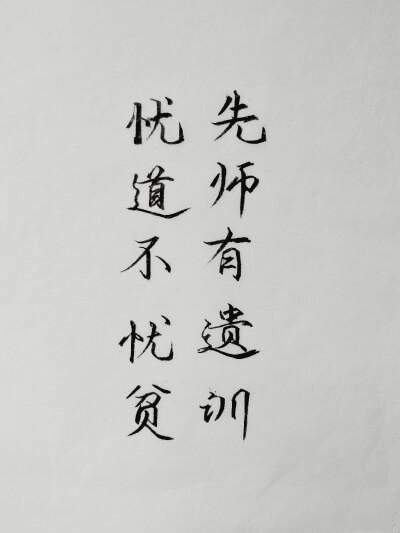 先师有遗训
忧道不忧贫